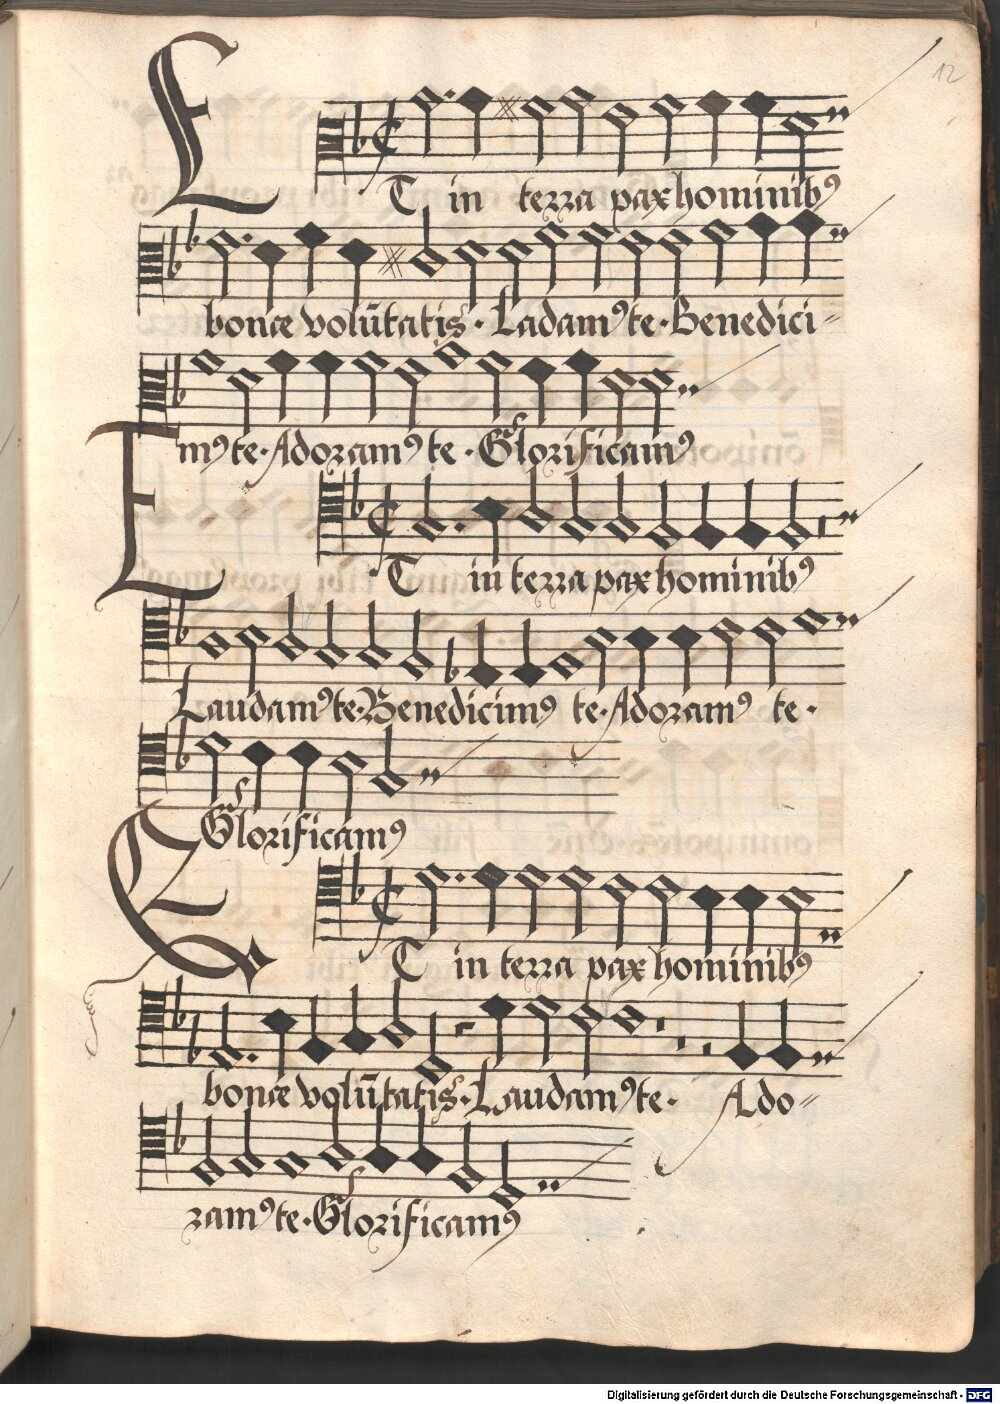 12
ET in terra pax hominibꝰ
bonae volūtatis · Ladamꝰ te · Benedici=
mꝰ te · Adoramꝰ te · Glorificamꝰ
ET in terra pax hominibꝰ
Laudamꝰ te · Benedicimꝰ te · Adoramꝰ te ·
Glorificamꝰ
ET in terra pax hominibꝰ
bonae volūtatis · Laudamꝰ te · Ado=
ramꝰ te · Glorificamꝰ
Digitalisierung gefördert durch die Deutsche Forschungsgemeinschaft - DFG